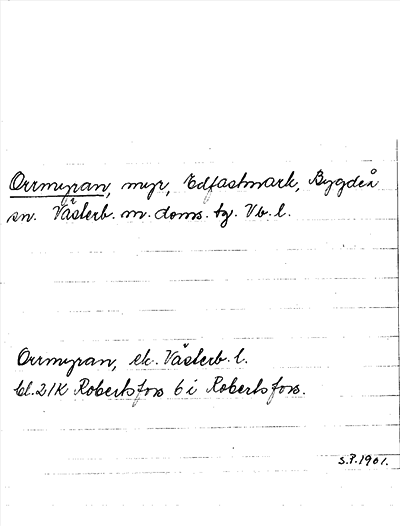 Orrmyran, myr, Edfastmark, Bygdeå
sn. Västerb. m. doms. tg. Vb. l.
Orrmyran, ek. Västerb. l.
bl. 21K Robertsfors 6 i Robertsfors.
S.P. 1961.